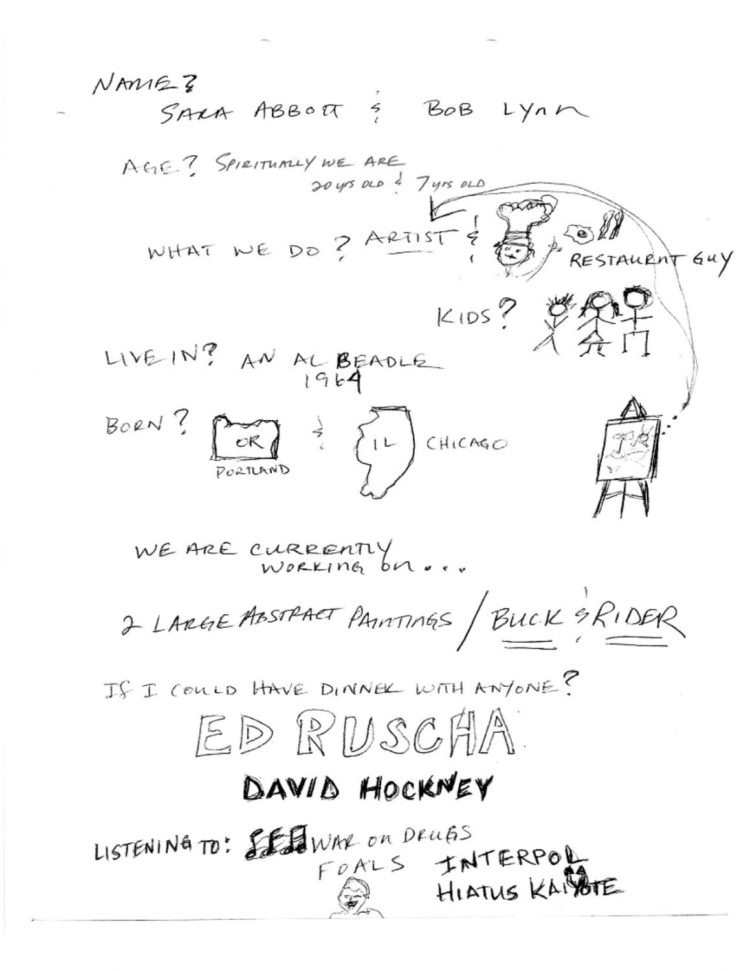 NAME?
SARA ABBOTT & BOB LYNN
AGE? SPIRITUALLY WE ARE
20 YRS OLD & 7 YRS OLD
WHAT WE DO? ARTIST &
RESTAURANT GUY
KIDS?
LIVE IN? AN AL BEADLE
1964
BORN? OR & IL CHICAGO
PORTLAND
WE ARE CURRENTLY
WORKING ON...
2 LARGE ABSTRACT PAINTINGS / BUCK & RIDER
IF I COULD HAVE DINNER WITH ANYONE?
ED RUSCHA
DAVID HOCKNEY
LISTENING TO: WAR ON DRUGS
FOALS INTERPOL
HIATUS KAIYOTE